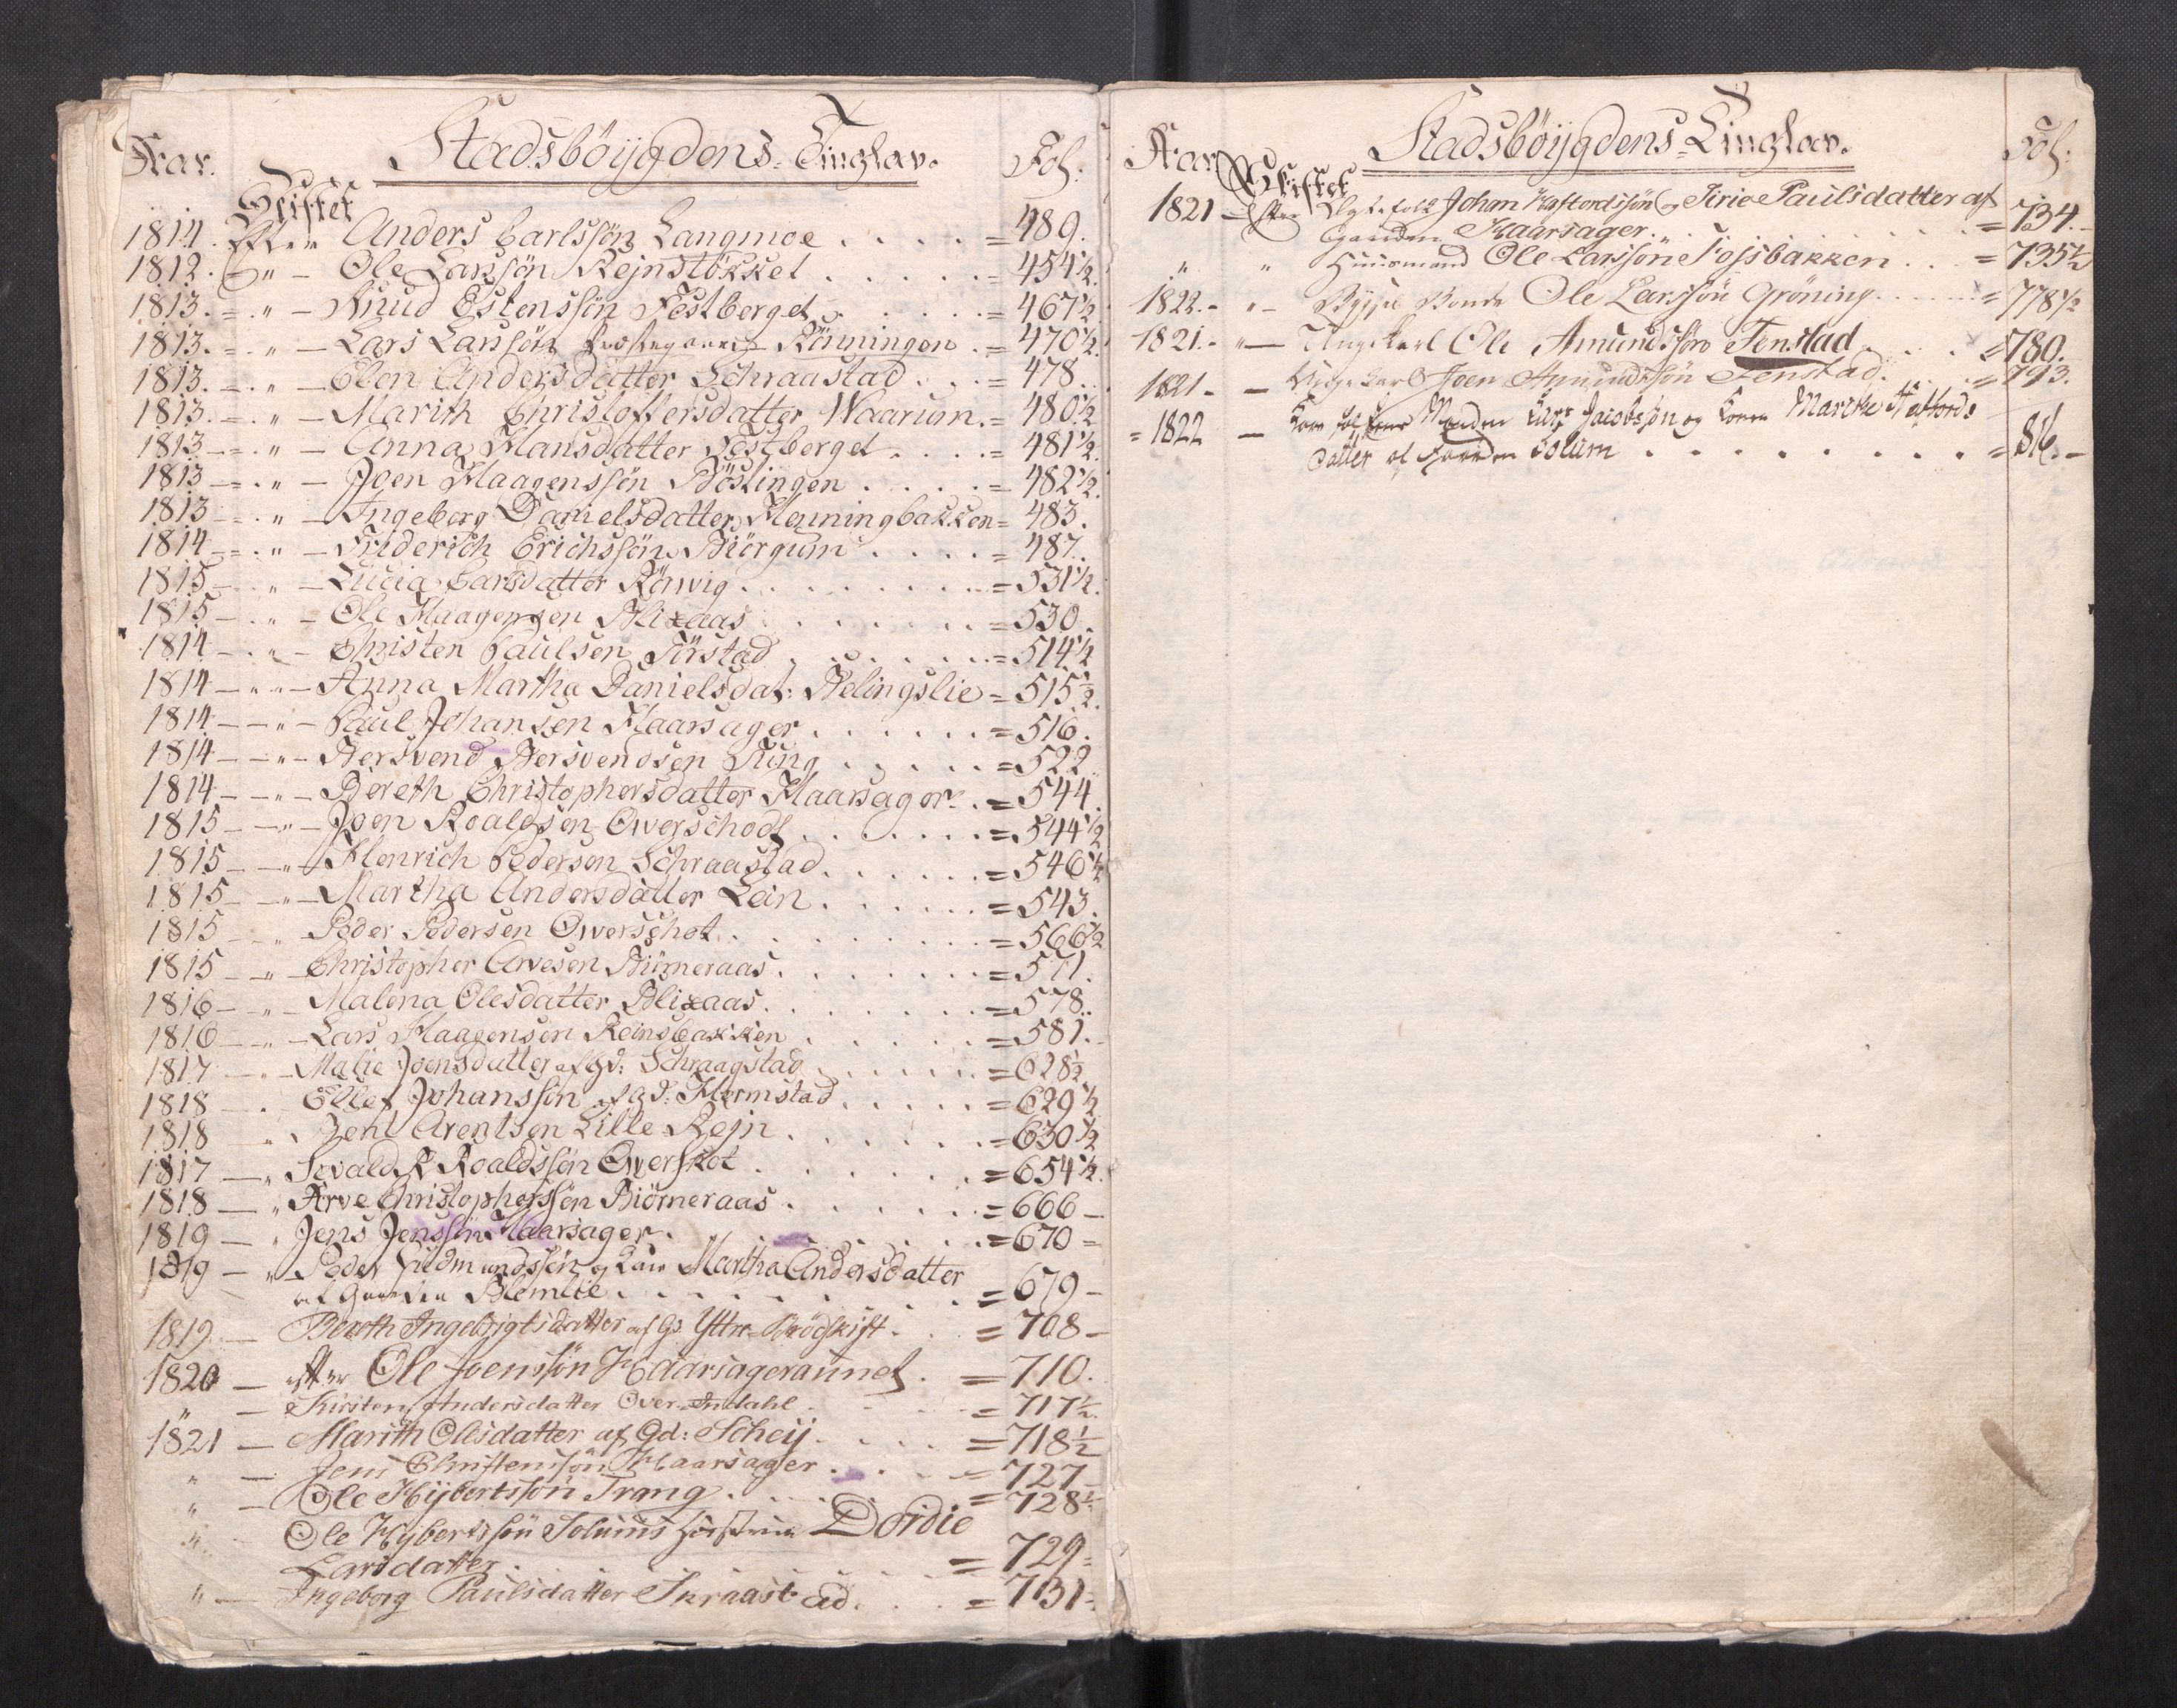 Aar. Stadsböijgdens-Tinglav. Fol.
Skiftet
1814. Efter Anders Carlssön Langmoe . . . . = 489.
1812. " - Ole Larssön Rejnstökket . . . . = 454½
1813. = " - Knud Estenssön Festberget . . . . = 467½
1813. = " - Lars Larssön Rönningen . = 470½
1813. = " - Elen Andersdatter Schraastad . . . = 478.
1813. = " - Marith Christoffersdatter Waarum . = 480½
1813 - = " - Anna Hansdatter Festberget . . . . = 481½
1813 - = " - Joen Haagenssön Röstingen . . . . = 482½
1813 - = " - Ingeborg Danielsdatter Henningbakken = 483.
1814 - = " - Friderich Erichssön Biörgum . . . . = 487.
1815 - " - Lucia Larsdatter Rörwig . . . . = 531½
1815 - " - Ole Haagensen Blixaas . . . . = 530.
1814 - " - Christen Paulsen Förstad . . . . = 514½
1814 - " - Anna Martha Danielsdat: Helingslie = 515½
1814 - " - Paul Johansen Haarsager . . . . = 516.
1814 - " - Bersvend Bersvendsen Tung . . . . = 522
1814 - " - Bereth Christophersdatter Haarsager . = 544.
1815 - " - Joen Roaldsen Owerschodt . . . . = 544½
1815 - " - Henrich Pedersen Schraastad . . . . = 546½
1815 - " - Martha Andersdatter Lein . . . . = 543.
1815 - " Peder Pedersen Owerschot . . . . = 566½
1815 - " - Christopher Arvesen Biörneraas . . . . = 571.
1816 - " - Malena Olesdatter Blixaas . . . . = 578.
1816 - " - Lars Haagensen Reinsbakken . . . . = 581.
1817 - " - Malie Joensdatter af Gd: Schraagstad . . . . = 628½
1818 - . Ellef Johanssön af Gd: Hermstad . . . . = 629½
1818 " Bent Arentsen Lille Rejn . . . . = 630½
1817 - " Sevald R Roaldssön Owerskot . . . . = 654½
1818 - " Arve Christopherssön Biörneraas . . . . = 666 -
1819 - " Jens Jenssön Haarsager . . . . = 670 =
1819 - " Peder Gudmundssön og Kone Martha Andersdatter
af Gaarden Blemlie . . . . = 679 -
1819 - Bereth Ingebrigtsdatter af Gd. Yttre Brödskift . = 708 -
1820 - efter Ole Joenssön Haarsageraunet . = 710.
" - Kirsten Andersdatter Over Andahl . . . . = 717½
1821 - Marith Olesdatter af Gd: Scheij . . . . = 718½
" - Jens Christenssön Haarsager . . . . = 727 -
" - Ole Hijbertssön Trang . . . . = 728½
" Ole Hybertssön Solums Hustrue Dordie
Larsdatter . . . . = 729 =
" - Ingeborg Paulsdatter Skraastad . . . = 731 =
Aar Stadsböijgdens-Tinglav. Fol:
Skiftet
1821 - Efter Ægtefolk Johan Haftordssön og Sirie Paulsdatter af
Gaarden Haarsager . . . . = 734 -
" " Huusmand Ole Larssön Fossbakken . . = 735½
1822 - " - Bygsel Bonde Ole Larssön Gröning . . . . = 778½
1821 - " - Ungekarl Ole Amundssön Fenstad . . . = 780.
1821 - - Ungekarl Joen Amundssön Fenstad . . . = 793.
= 1822 - Manden Lars Jacobssön og Konen Marethe Haftords
datter af Gaarden Solum . . . . = 816. -